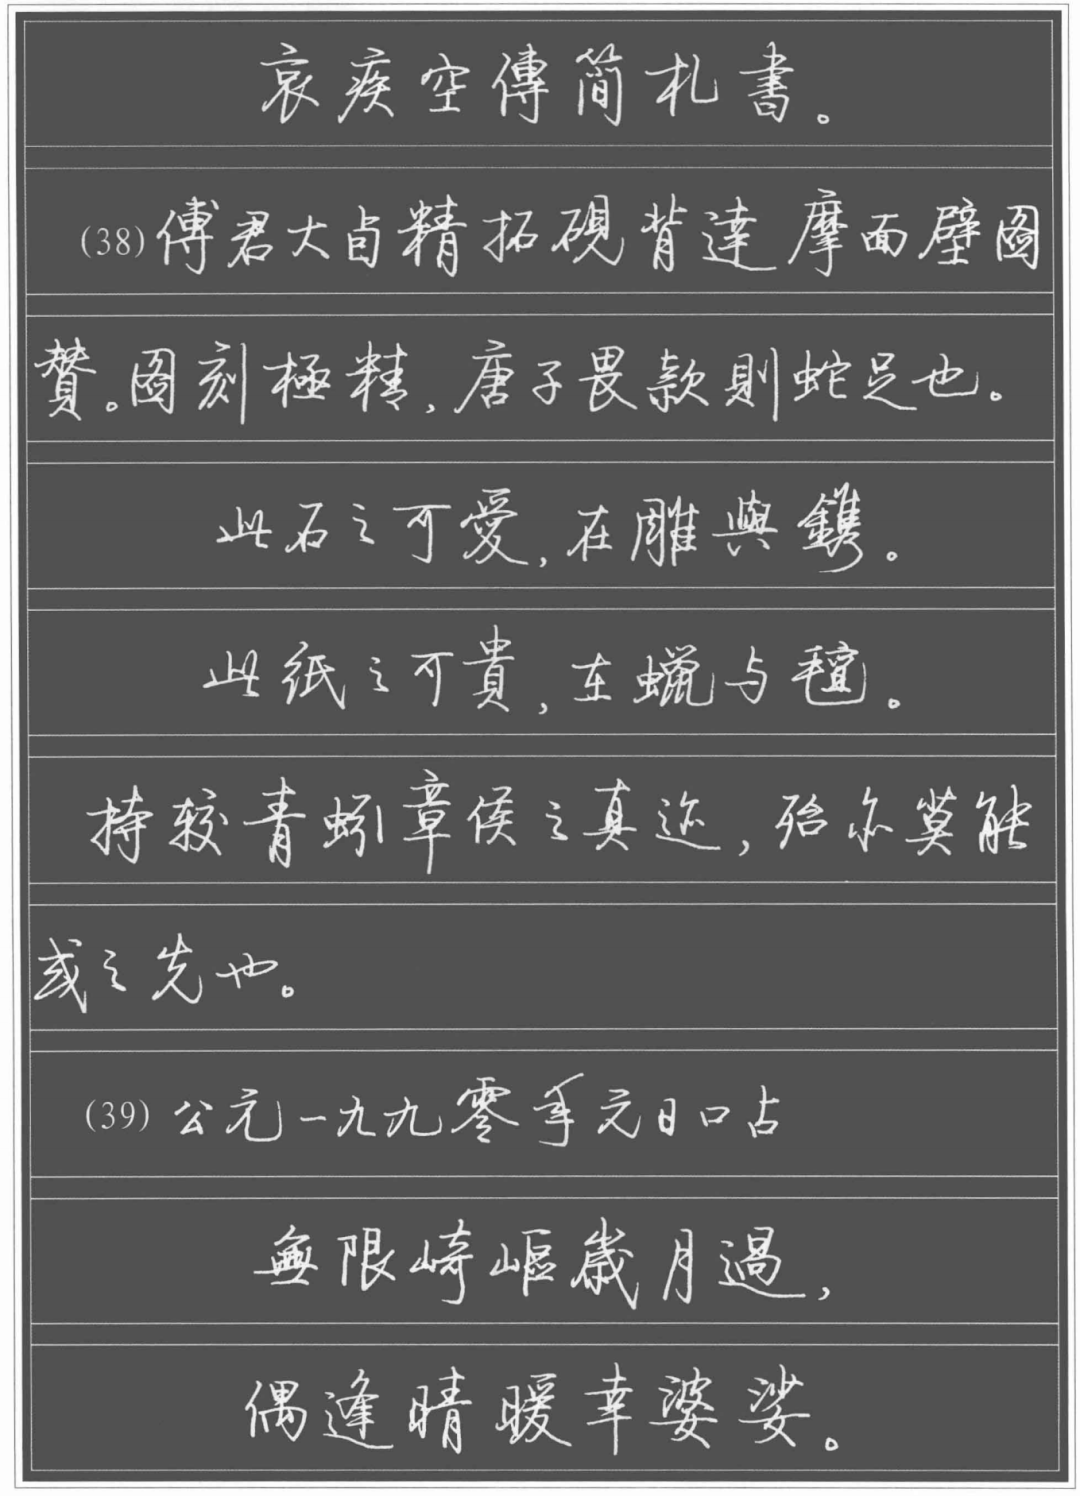 哀疾空傳簡札書。
(38)傅君大卣精拓硯背達摩面壁圖
贊。圖刻極精,唐子畏款則蛇足也。
此石之可愛,在雕與鐫。
此紙之可貴,在蠟与氊。
持較青蚓章侯之真迹,殆亦莫能
或之先也。
(39)公元一九九零年元日口占
無限崎嶇歲月過,
偶逢晴暖幸婆娑。